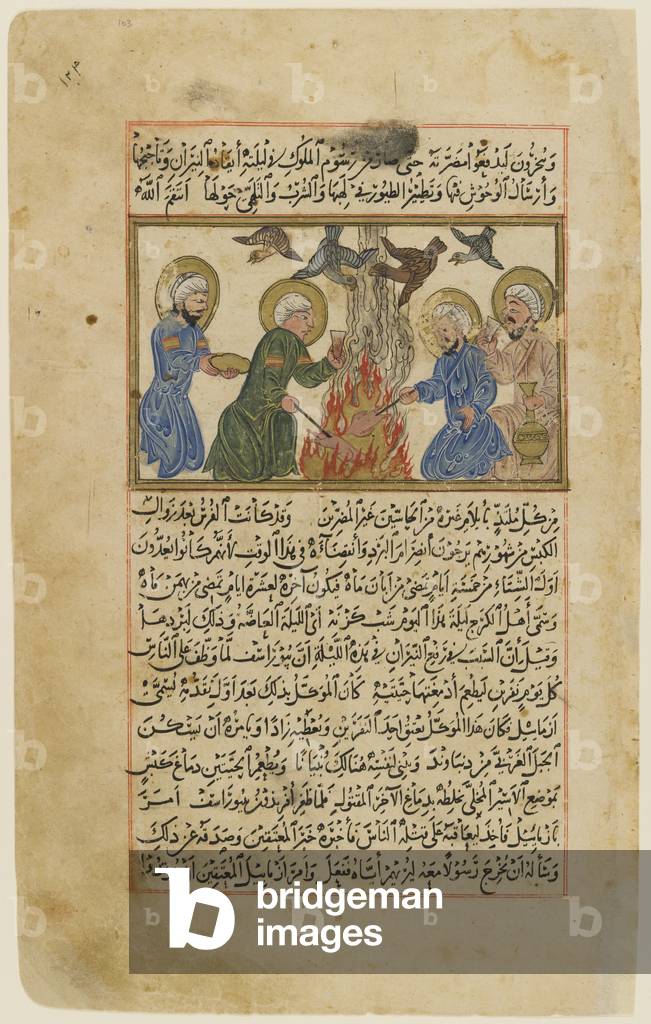 103
ويدخنون ليدفعوا مضرته حتى صار من رسوم الملوك في ليلته ايقاد النيران وتاجيجها
وارسال الوحوش فيها وتطيير الطيور في لهبها والشرب والتلهي حولها انتقم الله
من كل متلذذ بايلام غيره من الحاسين غير المضرين وقد كانت الفرس بعد زوال
الكبس من شهورهم يرجون انصرام البرد وانقضاءه في هذا الوقت لانهم كانوا يعدون
اول الشتاء من خمسة ايام تمضي من ابان ماه فيكون اخره لعشرة ايام تمضي من بهمن ماه
وسمى اهل الكرج ليلة هذا اليوم شب كزنه اي الليلة العاضة وذلك لبردها
وقيل ان السبب في رفع النيران في هذه الليلة ان بيوراسف لما وظف على الناس
كل يوم نفرين ليطعم ادمغتهما حيتيه كان الموكل بذلك بعد اول يسمى
ازمائيل فكان هذا الموكل يعتق احد النفرين ويعطيه زادا ويامره ان يسكن
الجبل الغربي من دنباوند ويبني لنفسه هنالك بنيانا ويطعم الحيتين دماغ كبش
بموضع الاسير المخلى يخلطه بدماغ الاخر المقتول فلما ظفر افريذون ببيوراسف امر
بازمائيل فاخذ ليعاقبه على قتله الناس فاخبره خبر المعتقين وصدقه عن ذلك
وساله ان يخرج رسولا معه ليريهم اياه ففعل وامر ازمائيل المعتقين ان يوقدوا
b bridgeman images